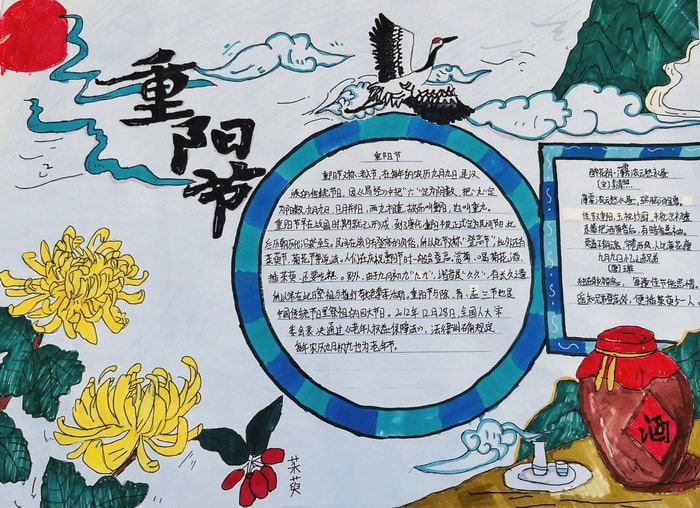 重阳节
重阳节
重阳节又称:老人节,在每年的农历九月九日,是汉
族的传统节日,因《易经》中把"六"定为阴数,把"九"定
为阳数,九月九日,日月并阳,两九相重,故而叫重阳,也叫重九。
重阳节早在战国时期就已形成,到了唐代,重阳节被正式定为民间节日,此
后历朝历代沿袭至今。民间在该日有登高的风俗,所以重阳节又称"登高节"。
茱萸节、菊花节等说法。人们在庆祝重阳节时一般会登高、赏菊、喝菊花酒、
插茱萸、还要吃糕。另外,由于九月初九"九九",谐音是"久久",有长久之意,
所以常在此日祭祖与推行敬老崇孝活动。重阳节与除、清、盂三节也是
中国传统节日里祭祖的四大节日。2012年12月28日,全国人大常
委会表决通过《老年人权益保障法》,法律明确规定
每年农历九月初九也为老年节。
醉花阴·薄雾浓云愁永昼
(宋)李清照
薄雾浓云愁永昼,瑞脑消金兽。
佳节又重阳,玉枕纱厨,半夜凉初透。
东篱把酒黄昏后,有暗香盈袖。
莫道不销魂,帘卷西风,人比黄花瘦
九月九日忆山东兄弟
(唐)王维
独在异乡为异客,每逢佳节倍思亲。
遥知兄弟登高处,遍插茱萸少一人
茱萸
酒